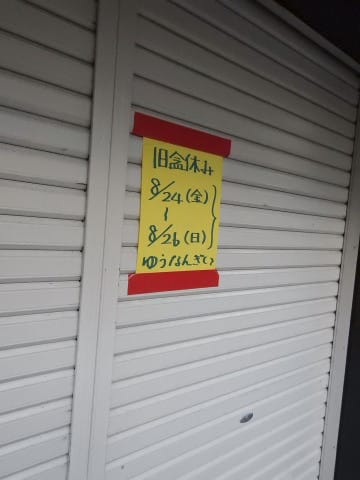 旧盆休み
8/24(金)
~
8/26(日)
ゆうなんぎい